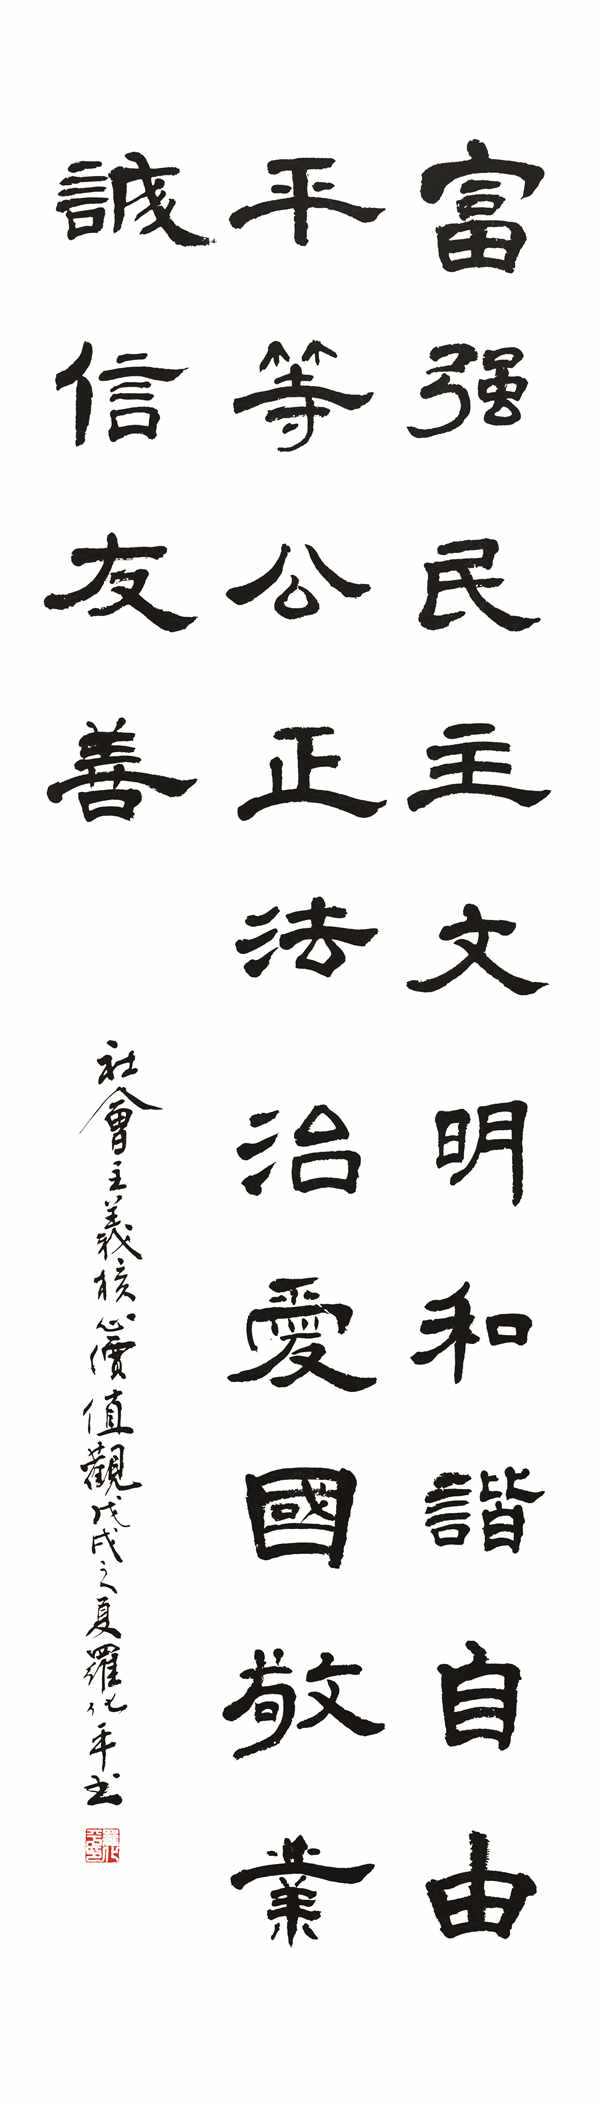 富强民主文明和諧自由
平等公正法治愛國敬業
誠信友善
社會主義核心價值觀戊戌之夏羅化平书